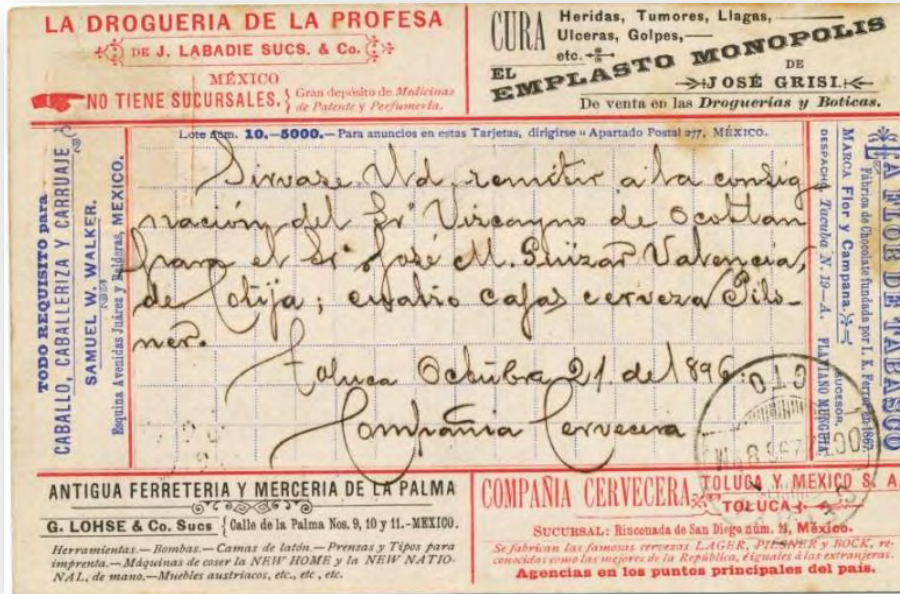 LA DROGUERIA DE LA PROFESA
DE J. LABADIE SUCS. & Co.
MÉXICO
NO TIENE SUCURSALES. } Gran depósito de Medicinas
de Patente y Perfumeria.
CURA Heridas, Tumores, Llagas,
Ulceras, Golpes,
etc.
EL EMPLASTO MONOPOLIS
DE
JOSÉ GRISI.
De venta en las Droguerías y Boticas.
TODO REQUISITO para
CABALLO, CABALLERIZA Y CARRUAJE
SAMUEL W. WALKER.
Esquina Avenidas Juárez y Balderas, MEXICO.
Lote núm. 10.-5000.- Para anuncios en estas Tarjetas, dirigirse á Apartado Postal 277, MÉXICO.
Sirvase Ud. remitir a la consig
nación del Sr. Viscayno de Ocotlan
para el Sr. José M. Guizar Valencia,
de Cotija; cuatro cajas cerveza Pils-
ner.
Toluca Octubre 21. de 1896.
Compañia Cervecera
LA FLOR DE TABASCO
Fábrica de Chocolate fundada por I. K. Ferrer en 1867.
MARCA Flor y Campana.
SUCESOR,
DESPACHO Tacuba N. 19-A. FLAVIANO MURGUIA.
OCT
ANTIGUA FERRETERIA Y MERCERIA DE LA PALMA
G. LOHSE & Co. Sucs { Calle de la Palma Nos. 9, 10 y 11.-MEXICO.
Herramientas.— Bombas.— Camas de latón.— Prensas y Tipos para
imprenta.— Máquinas de coser la NEW HOME y la NEW NATIO-
NAL, de mano.—Muebles austriacos, etc., etc, etc.
COMPAÑIA CERVECERA TOLUCA Y MEXICO S. A.
TOLUCA
SUCURSAL: Rinconada de San Diego núm. 11, México.
Se fabrican las famosas cervezas LAGER, PILSNER y BOCK, re-
conocidas como las mejores de la República, é iguales á las extranjeras.
Agencias en los puntos principales del país.